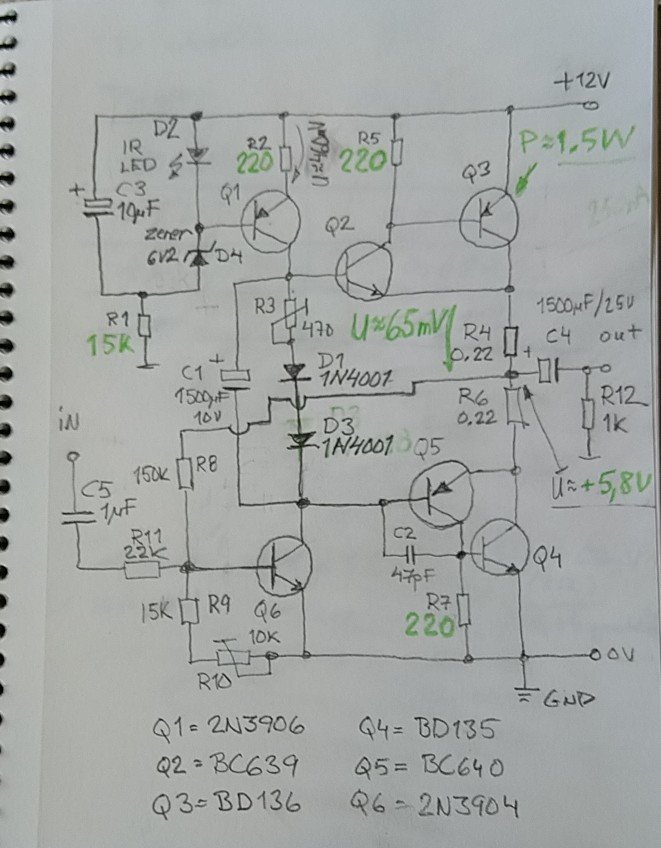 +12V
D2
IR
LED
R2
220
R5
220
P≈1.5W
C3
+
10µF
Q1
Q3
Q2
zener
6V2
D4
R1
15K
R3
470
U≈65mV
R4
0.22
1500µF/25V
+
C4
out
C1
+
1500µF
10V
D1
1N4001
R6
0.22
R12
1K
iN
D3
1N4001
Q5
U≈+5,8V
150K
R8
C5
1µF
R11
22K
C2
47pF
Q4
15K
R9
Q6
R7
220
10K
R10
0V
GND
Q1=2N3906
Q4=BD135
Q2=BC639
Q5=BC640
Q3=BD136
Q6=2N3904